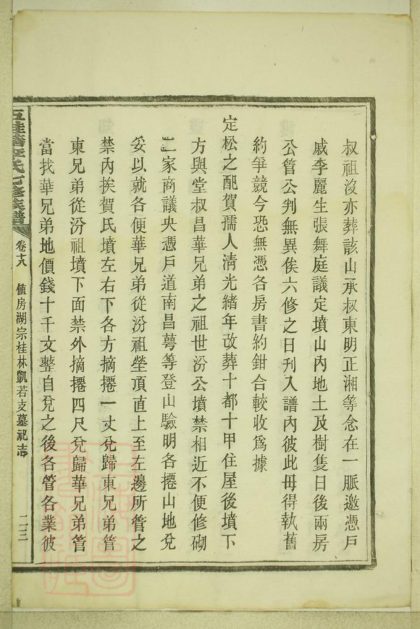 叔祖沒亦葬該山承叔東明正湘等念在一脈邀憑戶
戚李麗生張舞庭議定墳山內地土及樹隻日後兩房
公管公判無異俟六修之日刋入譜內彼此毋得執舊
約爭競今恐無憑各房書約鉗合較收爲據
定松之配賀孺人清光緒年改葬十都十甲住屋後墳下
方與堂叔昌華兄弟之祖世汾公墳禁相近不便修砌
二家商議央憑戶道南昌萼等登山驗明各捲山地兌
妥以就各便華兄弟從汾祖塋頂直上至左邊所管之
禁內挨賀氏墳左右下各方摘捲一丈兌歸東兄弟管
東兄弟從汾祖墳下面禁外摘捲四尺兌歸華兄弟管
當找華兄弟地價錢十千文整自兌之後各管各業彼
五桂 七修族譜
卷十八
値房湖宗桂林凱若支墓祀志
二三